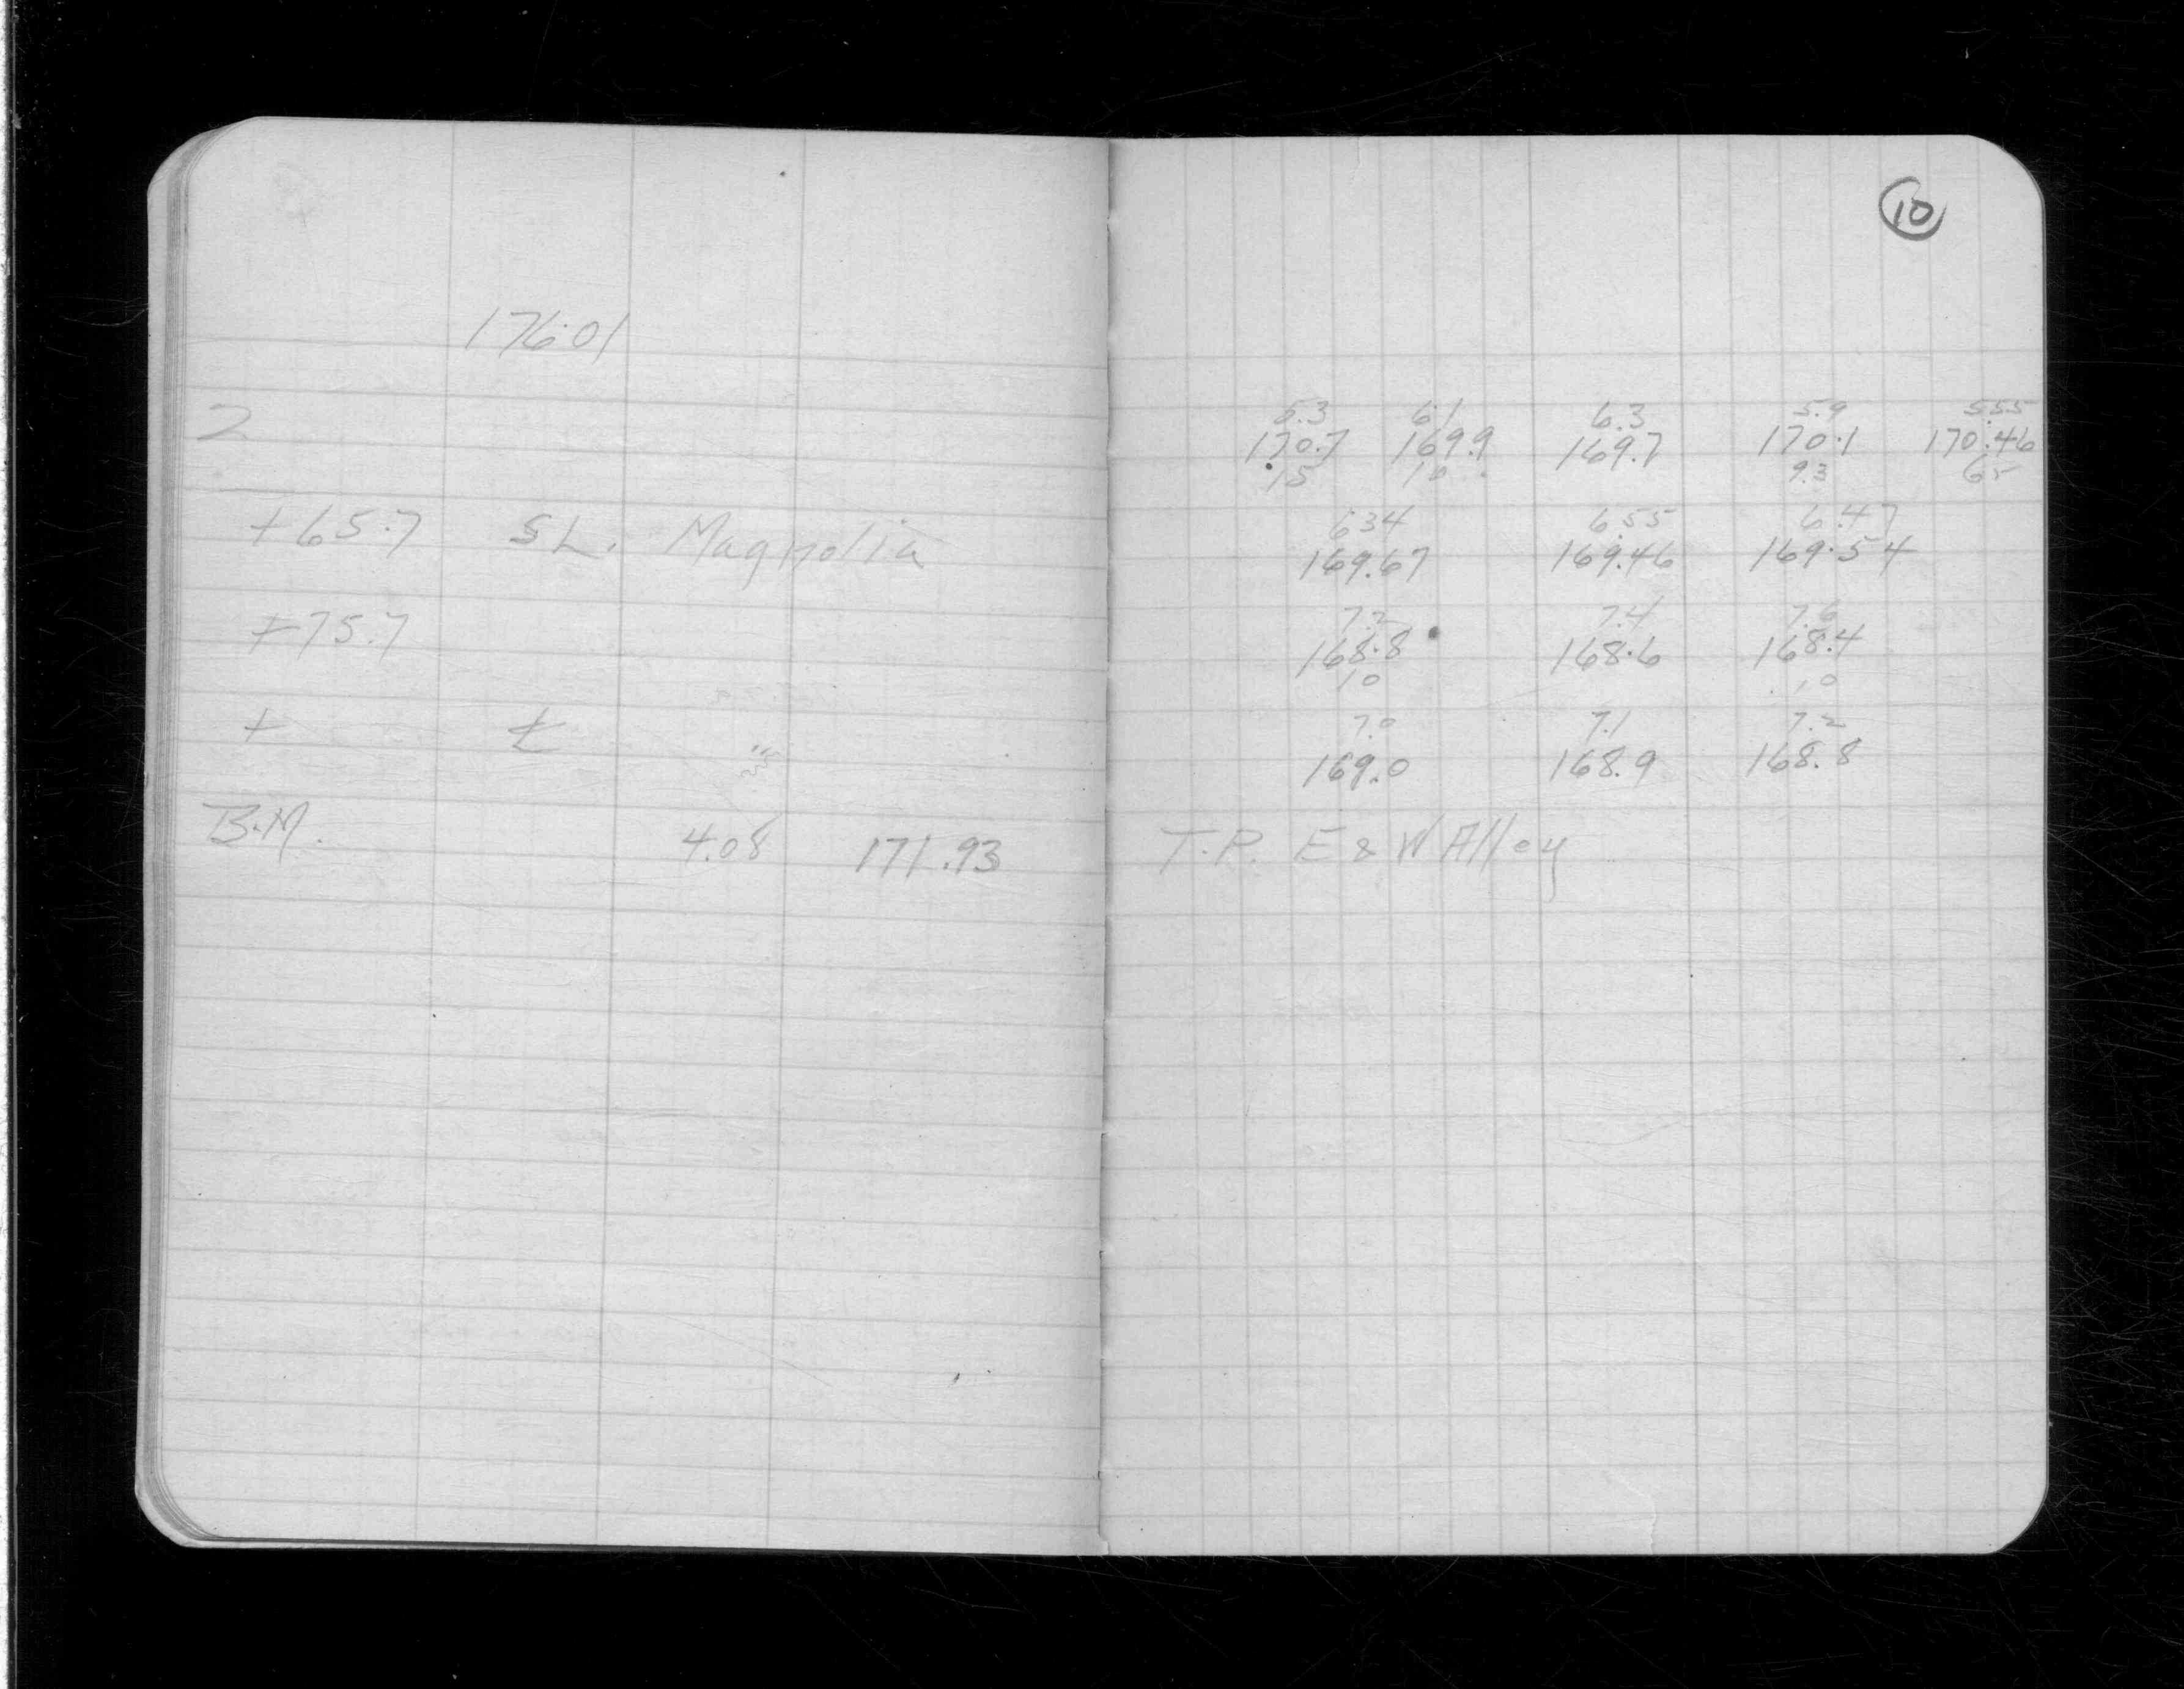 10
176.01
2
5.3 6.1 6.3 5.9 5.55
170.7 169.9 169.7 170.1 170.46
15 10 9.3 65
+65.7 SL. Magnolia
6.34 6.55 6.47
169.67 169.46 169.54
+75.7
7.2 7.4 7.6
168.8 168.6 168.4
10 10
+ ℄
7.0 7.1 7.2
169.0 168.9 168.8
B.M. 4.08 171.93 T.P. E & W Alley